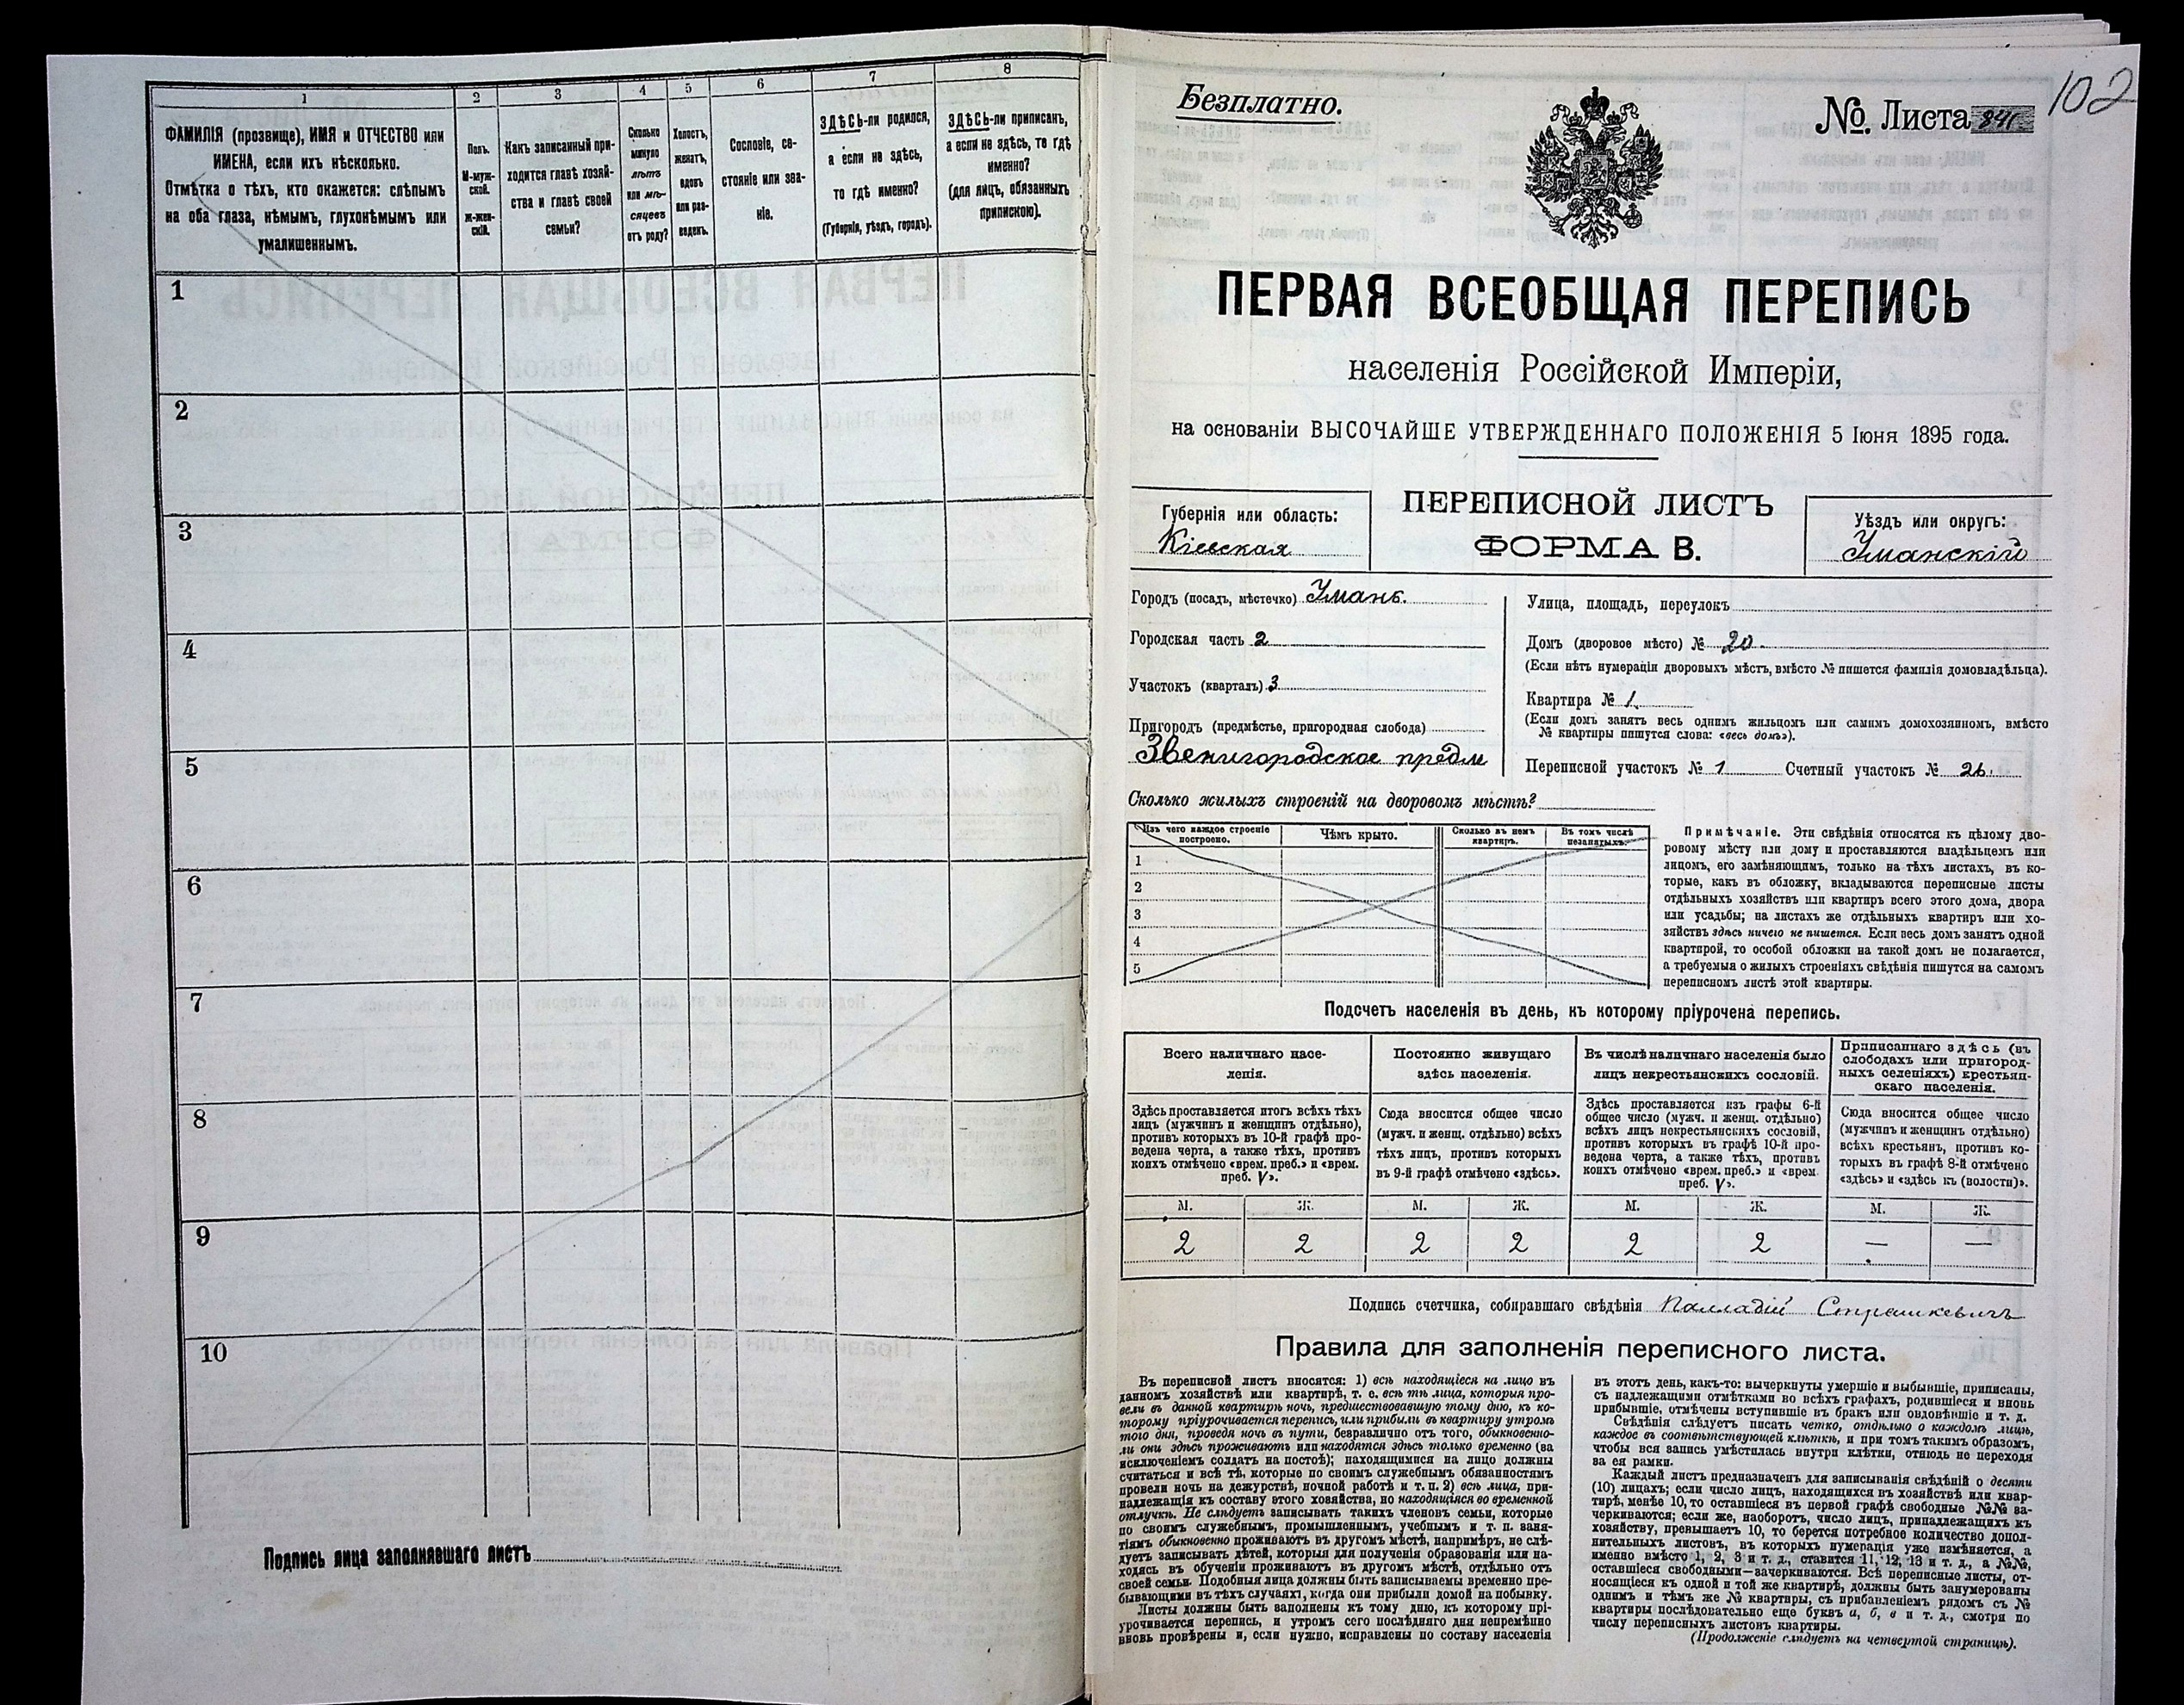 1
2
3
4
5
6
7
8
ФАМИЛІЯ (прозвище), ИМЯ и ОТЧЕСТВО или
ИМЕНА, если ихъ нѣсколько.
Отмѣтка о тѣхъ, кто окажется: слѣпымъ
на оба глаза, нѣмымъ, глухонѣмымъ или
умалишеннымъ.
Полъ.
М-муж-
ской.
ж-жен-
скій.
Какъ записанный при-
ходится главѣ хозяй-
ства и главѣ своей
семьи?
Сколько
минуло
лѣтъ
или мѣ-
сяцевъ
отъ роду?
Холостъ,
женатъ,
вдовъ
или раз-
веденъ.
Сословіе, со-
стояніе или зва-
ніе.
ЗДѢСЬ-ли родился,
а если не здѣсь,
то гдѣ именно?
(Губернія, уѣздъ, городъ).
ЗДѢСЬ-ли приписанъ,
а если не здѣсь, то гдѣ
именно?
(для лицъ, обязанныхъ
припискою).
1
2
3
4
5
6
7
8
9
10
Подпись лица заполнявшаго листъ
Безплатно.
№. Листа 841
102
ПЕРВАЯ ВСЕОБЩАЯ ПЕРЕПИСЬ
населенія Россійской Имперіи,
на основаніи ВЫСОЧАЙШЕ УТВЕРЖДЕННАГО ПОЛОЖЕНІЯ 5 Іюня 1895 года.
Губернія или область:
Кіевская
ПЕРЕПИСНОЙ ЛИСТЪ
ФОРМА В.
Уѣздъ или округъ:
Уманскій
Городъ (посадъ, мѣстечко) Умань.
Городская часть 2
Участокъ (кварталъ) 3
Пригородъ (предмѣстье, пригородная слобода)
Звенигородское предм
Улица, площадь, переулокъ
Домъ (дворовое мѣсто) № 20.
(Если нѣтъ нумераціи дворовыхъ мѣстъ, вмѣсто № пишется фамилія домовладѣльца).
Квартира № 1.
(Если домъ занятъ весь однимъ жильцомъ или самимъ домохозяиномъ, вмѣсто
№ квартиры пишутся слова: «весь домъ»).
Переписной участокъ № 1 Счетный участокъ № 26.
Сколько жилыхъ строеній на дворовомъ мѣстѣ?
Изъ чего каждое строеніе
построено.
Чѣмъ крыто.
Сколько въ немъ
квартиръ.
Въ томъ числѣ
незанятыхъ.
1
2
3
4
5
Примѣчаніе. Эти свѣдѣнія относятся къ цѣлому дво-
ровому мѣсту или дому и проставляются владѣльцемъ или
лицомъ, его замѣняющимъ, только на тѣхъ листахъ, въ ко-
торые, какъ въ обложку, вкладываются переписные листы
отдѣльныхъ хозяйствъ или квартиръ всего этого дома, двора
или усадьбы; на листахъ же отдѣльныхъ квартиръ или хо-
зяйствъ здѣсь ничего не пишется. Если весь домъ занятъ одной
квартирой, то особой обложки на такой домъ не полагается,
а требуемыя о жилыхъ строеніяхъ свѣдѣнія пишутся на самомъ
переписномъ листѣ этой квартиры.
Подсчетъ населенія въ день, къ которому пріурочена перепись.
Всего наличнаго насе-
ленія.
Постоянно живущаго
здѣсь населенія.
Въ числѣ наличнаго населенія было
лицъ некрестьянскихъ сословій.
Приписаннаго здѣсь (въ
слободахъ или пригород-
ныхъ селеніяхъ) крестьян-
скаго населенія.
Здѣсь проставляется итогъ всѣхъ тѣхъ
лицъ (мужчинъ и женщинъ отдѣльно),
противъ которыхъ въ 10-й графѣ про-
ведена черта, а также тѣхъ, противъ
коихъ отмѣчено «врем. преб.» и «врем.
преб. V».
Сюда вносится общее число
(мужч. и женщ. отдѣльно) всѣхъ
тѣхъ лицъ, противъ которыхъ
въ 9-й графѣ отмѣчено «здѣсь».
Здѣсь проставляется изъ графы 6-й
общее число (мужч. и женщ. отдѣльно)
всѣхъ лицъ некрестьянскихъ сословій,
противъ которыхъ въ графѣ 10-й про-
ведена черта, а также тѣхъ, противъ
коихъ отмѣчено «врем. преб.» и «врем.
преб. V».
Сюда вносится общее число
(мужчинъ и женщинъ отдѣльно)
всѣхъ крестьянъ, противъ ко-
торыхъ въ графѣ 8-й отмѣчено
«здѣсь» и «здѣсь къ (волости)».
М. Ж. М. Ж. М. Ж. М. Ж.
2 2 2 2 2 2 — —
Подпись счетчика, собиравшаго свѣдѣнія Палладій Страшкевичъ
Правила для заполненія переписного листа.
Въ переписной листъ вносятся: 1) всѣ находящіеся на лицо въ
данномъ хозяйствѣ или квартирѣ, т. е. всѣ тѣ лица, которыя про-
вели въ данной квартирѣ ночь, предшествовавшую тому дню, къ ко-
торому пріурочивается перепись, или прибыли въ квартиру утромъ
того дня, проведя ночь въ пути, безразлично отъ того, обыкновенно-
ли они здѣсь проживаютъ или находятся здѣсь только временно (за
исключеніемъ солдатъ на постоѣ); находящимися на лицо должны
считаться и всѣ тѣ, которые по своимъ служебнымъ обязанностямъ
провели ночь на дежурствѣ, ночной работѣ и т. п. 2) всѣ лица, при-
надлежащія къ составу этого хозяйства, но находящіяся во временной
отлучкѣ. Не слѣдуетъ записывать такихъ членовъ семьи, которые
по своимъ служебнымъ, промышленнымъ, учебнымъ и т. п. заня-
тіямъ обыкновенно проживаютъ въ другомъ мѣстѣ, напримѣръ, не слѣ-
дуетъ записывать дѣтей, которыя для полученія образованія или на-
ходясь въ обученіи проживаютъ въ другомъ мѣстѣ, отдѣльно отъ
своей семьи. Подобныя лица должны быть записываемы временно пре-
бывающими въ тѣхъ случаяхъ, когда они прибыли домой на побывку.
Листы должны быть заполнены къ тому дню, къ которому прі-
урочивается перепись, и утромъ сего послѣдняго дня непремѣнно
вновь провѣрены и, если нужно, исправлены по составу населенія
въ этотъ день, какъ-то: вычеркнуты умершіе и выбывшіе, приписаны,
съ надлежащими отмѣтками во всѣхъ графахъ, родившіеся и вновь
прибывшіе, отмѣчены вступившіе въ бракъ или овдовѣвшіе и т. д.
Свѣдѣнія слѣдуетъ писать четко, отдѣльно о каждомъ лицѣ,
каждое въ соотвѣтствующей клѣткѣ, и при томъ такимъ образомъ,
чтобы вся запись умѣстилась внутри клѣтки, отнюдь не переходя
за ея рамки.
Каждый листъ предназначенъ для записыванія свѣдѣній о десяти
(10) лицахъ; если число лицъ, находящихся въ хозяйствѣ или квар-
тирѣ, менѣе 10, то оставшіеся въ первой графѣ свободные №№ за-
черкиваются; если же, наоборотъ, число лицъ, принадлежащихъ къ
хозяйству, превышаетъ 10, то берется потребное количество допол-
нительныхъ листовъ, въ которыхъ нумерація уже измѣняется, а
именно вмѣсто 1, 2, 3 и т. д., ставится 11, 12, 13 и т. д., а №№,
оставшіеся свободными—зачеркиваются. Всѣ переписные листы, от-
носящіеся къ одной и той же квартирѣ, должны быть занумерованы
однимъ и тѣмъ же № квартиры, съ прибавленіемъ рядомъ съ №
квартиры послѣдовательно еще буквъ а, б, в и т. д., смотря по
числу переписныхъ листовъ квартиры.
(Продолженіе слѣдуетъ на четвертой страницѣ).